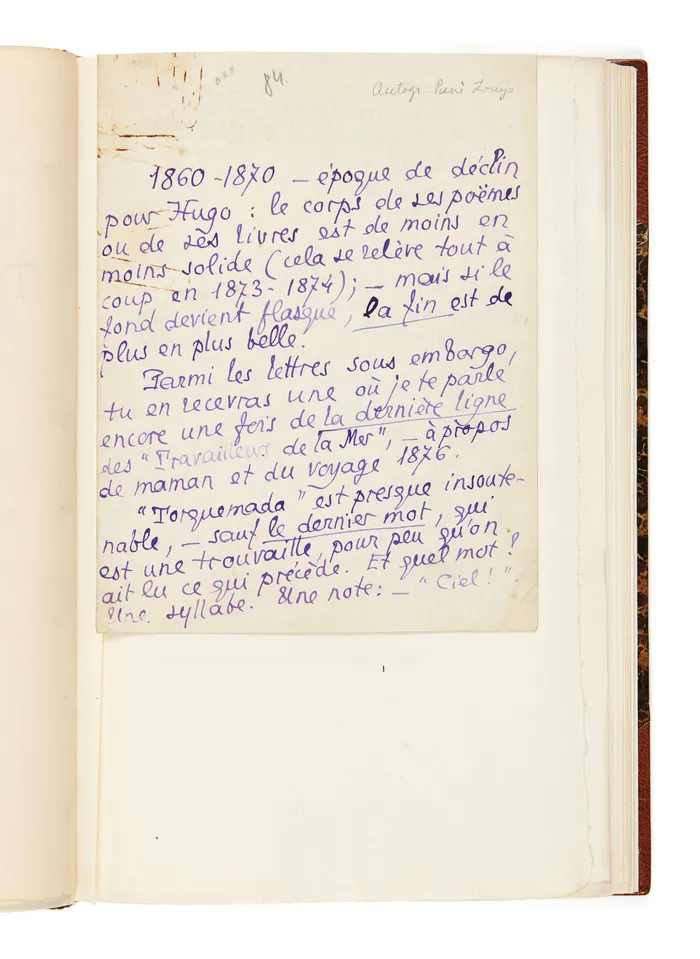 84.
Autogr. Pierre Louÿs
1860-1870 — époque de déclin
pour Hugo : le corps de ses poèmes
ou de ses livres est de moins en
moins solide (cela se relève tout à
coup en 1873-1874); — mais si le
fond devient flasque, la fin est de
plus en plus belle.
Parmi les lettres sous embargo,
tu en recevras une où je te parle
encore une fois de la dernière ligne
des "Travailleurs de la Mer", — à propos
de maman et du voyage 1876.
"Torquemada" est presque insoute-
nable, — sauf le dernier mot, qui
est une trouvaille, pour peu qu'on
ait lu ce qui précède. Et quel mot ?
Une syllabe. Une note : — "Ciel!".